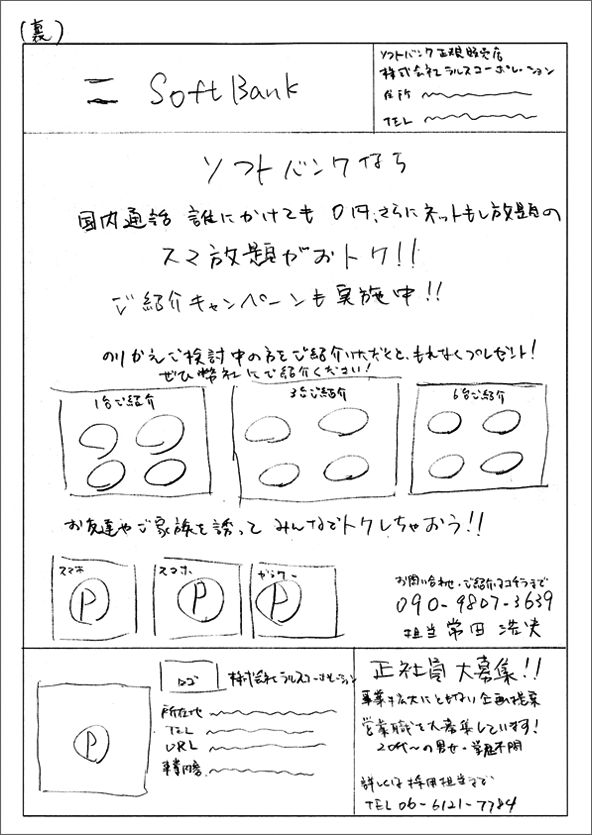 (裏)
= SoftBank
ソフトバンク正規販売店
株式会社ラルスコーポレーション
住所
TEL
ソフトバンクなら
国内通話 誰にかけても 0円、さらにネットもし放題の
スマ放題がおトク!!
ご紹介キャンペーンも実施中!!
のりかえご検討中の方をご紹介いただくと、もれなくプレゼント!
ぜひ弊社にご紹介ください!
1台ご紹介
3台ご紹介
6台ご紹介
お友達やご家族を誘って みんなでトクしちゃおう!!
スマホ
P
スマホ
P
ガラケー
P
お問い合わせ・ご紹介はコチラまで
090-9807-3639
担当 常田 浩夫
ロゴ
株式会社ラルスコーポレーション
P
所在地
TEL
URL
事業内容
正社員 大募集!!
事業拡大にともない企画提案
営業職を大募集しています!
20代〜の男女・学歴不問
詳しくは採用担当まで
TEL 06-6121-7784